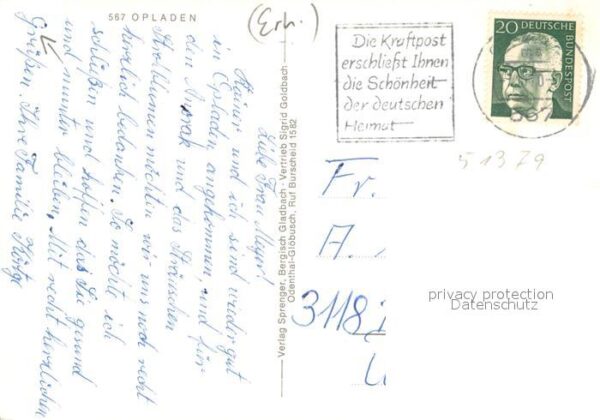 567 OPLADEN
(Erh.)
Liebe Frau Meyer!
Heiner und ich sind wieder gut
in Opladen angekommen und für
den Anorak und das Sträußchen
Strohblumen möchten wir uns noch recht
herzlich bedanken. So möchte ich
schließen und hoffen das Sie gesund
und munter bleiben. Mit recht herzlichen
Grüßen Ihre Familie
Verlag Sprenger, Bergisch Gladbach · Vertrieb Sigrid Goldbach
Odenthal-Glöbusch, Ruf Burscheid 1582
Die Kraftpost
erschließt Ihnen
die Schönheit
der deutschen
Heimat
20 DEUTSCHE
BUNDESPOST
567
51379
Fr.
A.
3118
privacy protection
Datenschutz